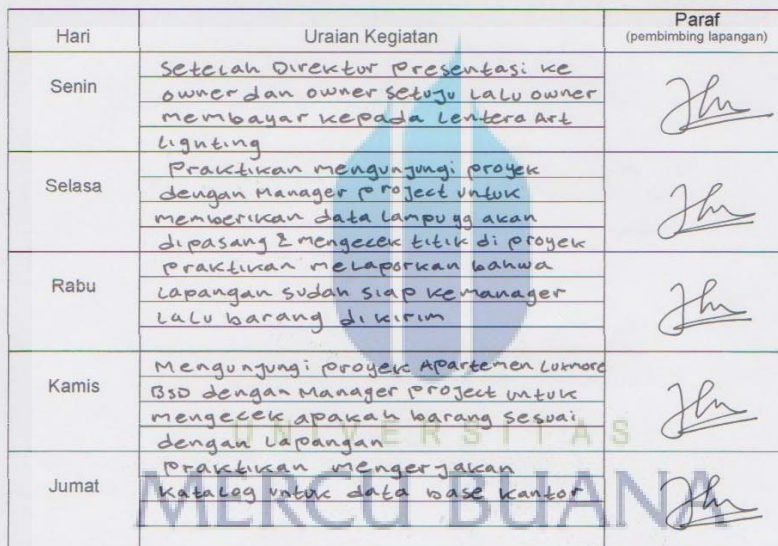 Hari Uraian Kegiatan Paraf
(pembimbing lapangan)
Senin
Setelah Direktur presentasi ke
owner dan owner setuju lalu owner
membayar kepada Lentera Art
Lighting
Selasa
Praktikan mengunjungi proyek
dengan Manager project untuk
memberikan data lampu yg akan
dipasang & mengecek titik di proyek
Rabu
Praktikan melaporkan bahwa
lapangan sudah siap kemanager
lalu barang dikirim
Kamis
Mengunjungi proyek Apartemen Luxmore
BSD dengan Manager project untuk
mengecek apakah barang sesuai
dengan lapangan
Jumat
Praktikan mengerjakan
katalog untuk data base kantor
UNIVERSITAS
MERCU BUANA